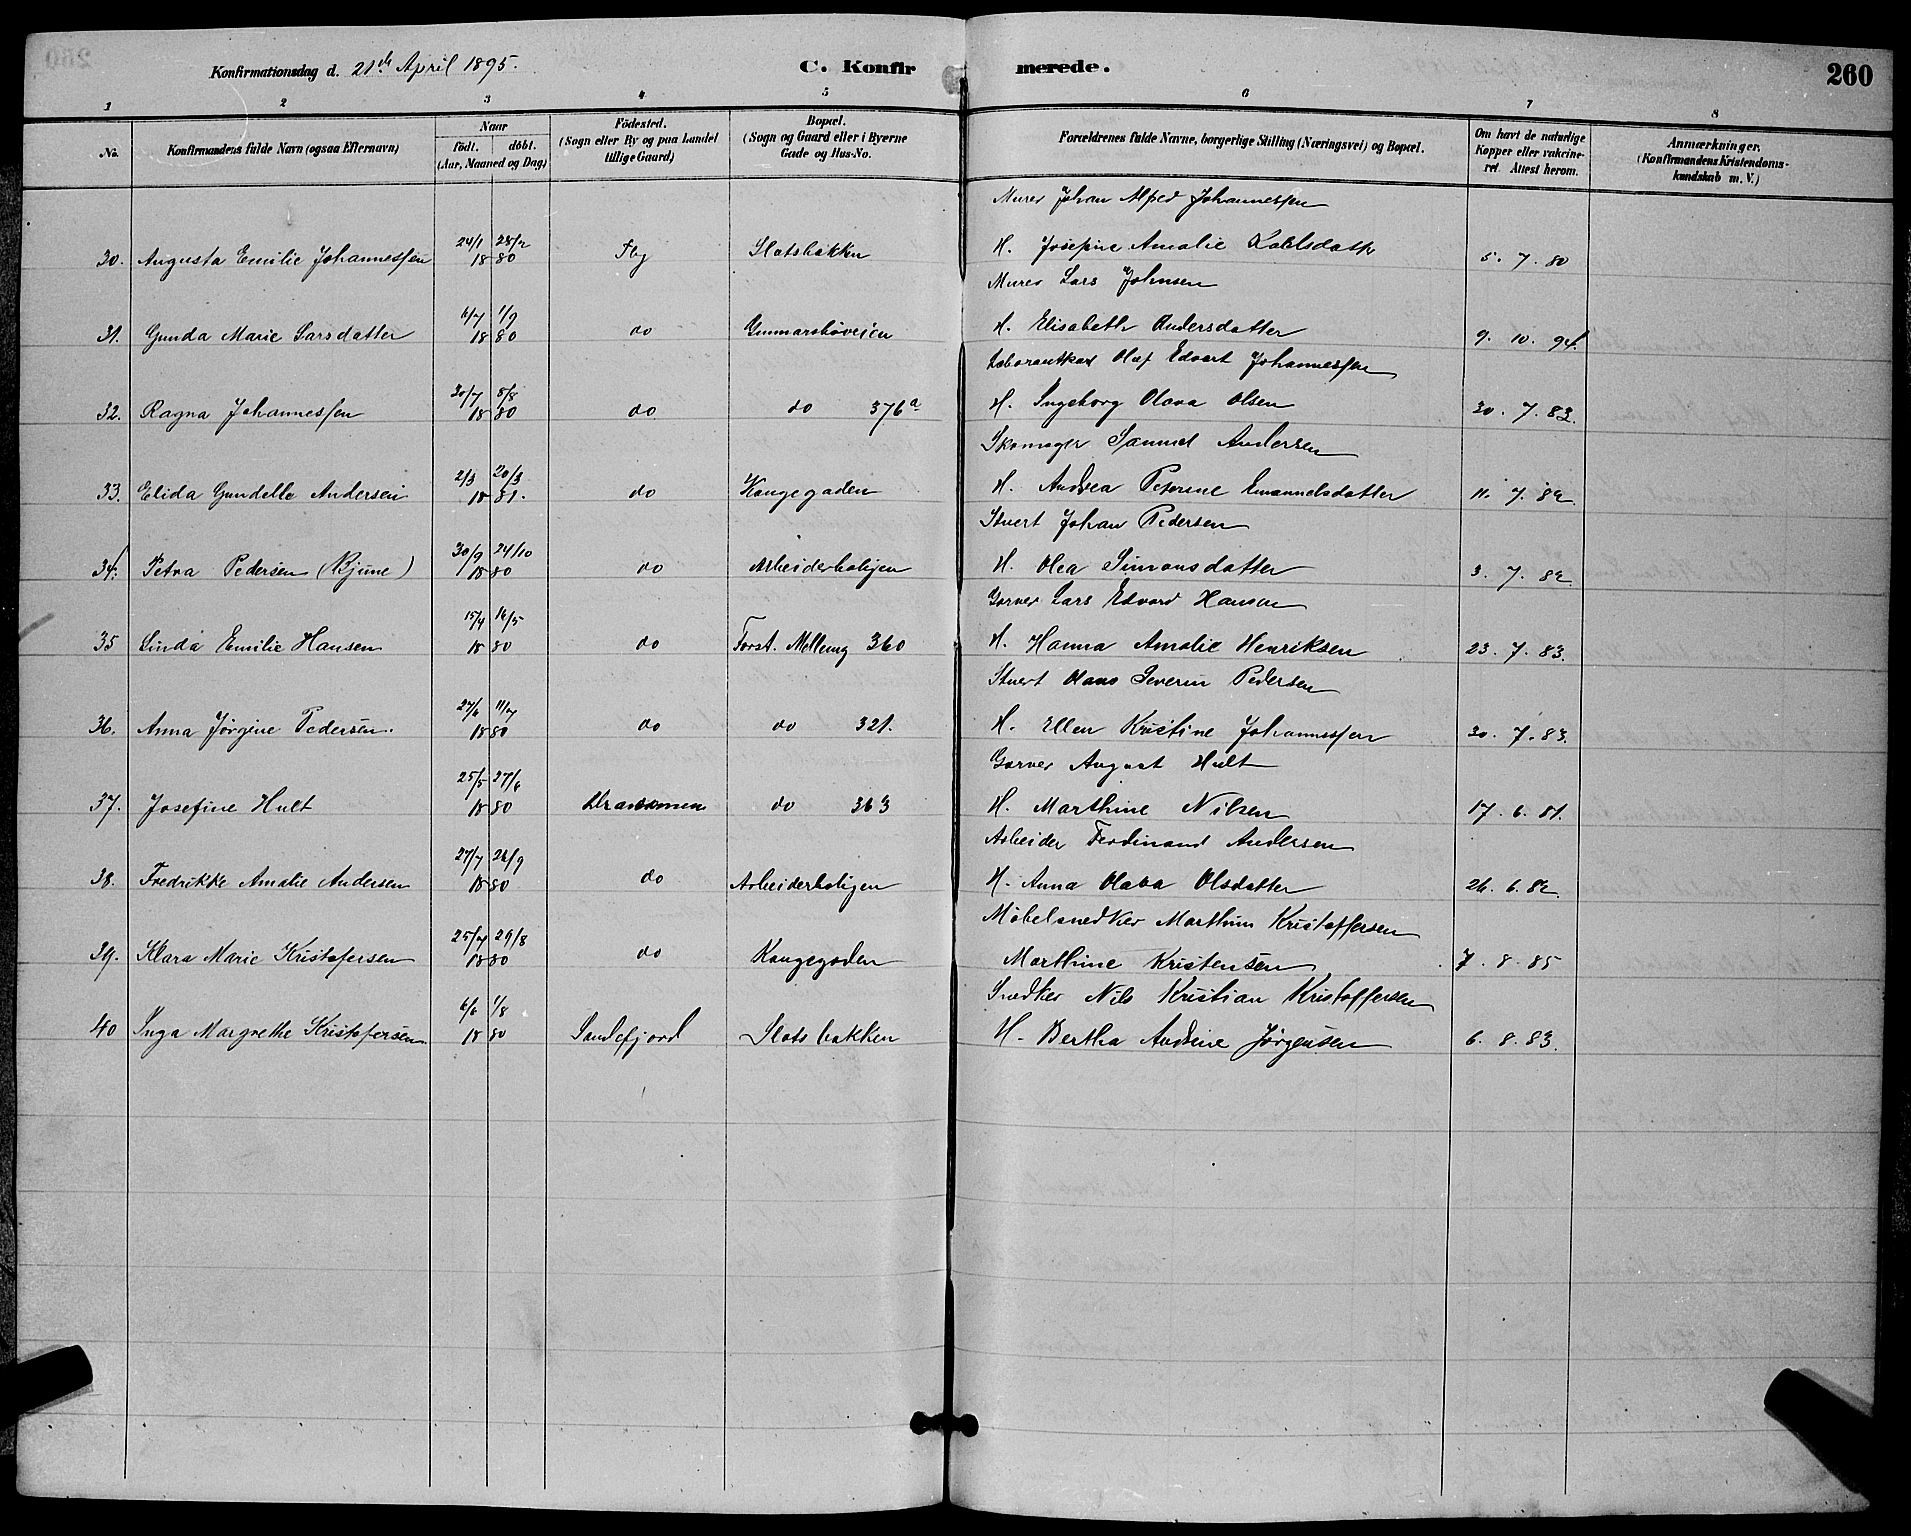 Konfirmationsdag d. 21de April 1895. C. Konfirmerede. 260
1 2 3 4 5 6 7 8
No. Konfirmandens fulde Navn (ogsaa Efternavn) Naar födt. döbt. (Aar, Maaned og Dag) Födested. (Sogn eller By og paa Landet tillige Gaard) Bopæl. (Sogn og Gaard eller i Byerne Gade og Hus-No. Forældrenes fulde Navne, borgerlige Stilling (Næringsvei) og Bopæl. Om havt de naturlige Kopper eller vakcineret. Attest herom. Anmærkninger. (Konfirmandens Kristendomskundskab m. V.)
Murer Johan Alfred Johannessen
30. Augusta Emilie Johannessen 24/1 28/2 18 80 Fbg Slotsbakken H. Josefine Amalie Karlsdatr 5. 7. 80
Murer Lars Johnsen
31. Gunda Marie Larsdatter 6/7 1/9 18 80 do Gunnarsböveien H. Elisabeth Andersdatter 9. 10. 94.
Laborantkarl Olaf Edvart Johannessen
32. Ragna Johannessen 30/7 8/8 18 80 do do 376a H. Ingeborg Olava Olsen 30. 7. 83.
Skomager Samuel Andersen
33. Elida Gundelle Andersen 2/3 20/3 18 81. do Kongegaden H. Andrea Petersne Emanuelsdatter 11. 7. 82
Stuert Johan Pedersen
34. Petra Pedersen (Bjune) 30/9 24/10 18 80 do Arbeiderboligen H. Olea Simonsdatter 3. 7. 82
Garver Lars Edvard Hansen
35 Linda Emilie Hansen 15/4 16/5 18 80 do Forst. Melleng 360 H. Hanna Amalie Henriksen 23. 7. 83.
Stuert Hans Severin Pedersen
36. Anna Jørgine Pedersen. 27/6 11/7 18 80 do do 321. H. Ellen Kristine Johannessen 30. 7. 83.
Garver August Hult
37. Josefine Hult 25/5 27/6 18 80 Drammen do 363 H. Marthine Nilsen 17. 6. 81.
Arbeider Ferdinand Andersen
38. Fredrikke Amalie Andersen 27/7 26/9 18 80 do Arbeiderboligen H. Anna Olava Olsdatter 26. 6. 82
Møbelsnedker Marthin Kristoffersen
39. Klara Marie Kristofersen 25/7 29/8 18 80 do Kongegaden Marthine Kristensen 7. 8. 85
Snedker Nils Kristian Kristoffersen
40 Inga Margrethe Kristofersen. 6/6 1/8 18 80 Sandefjord Slotsbakken H. Bertha Andrine Jørgensen 6. 8. 83.